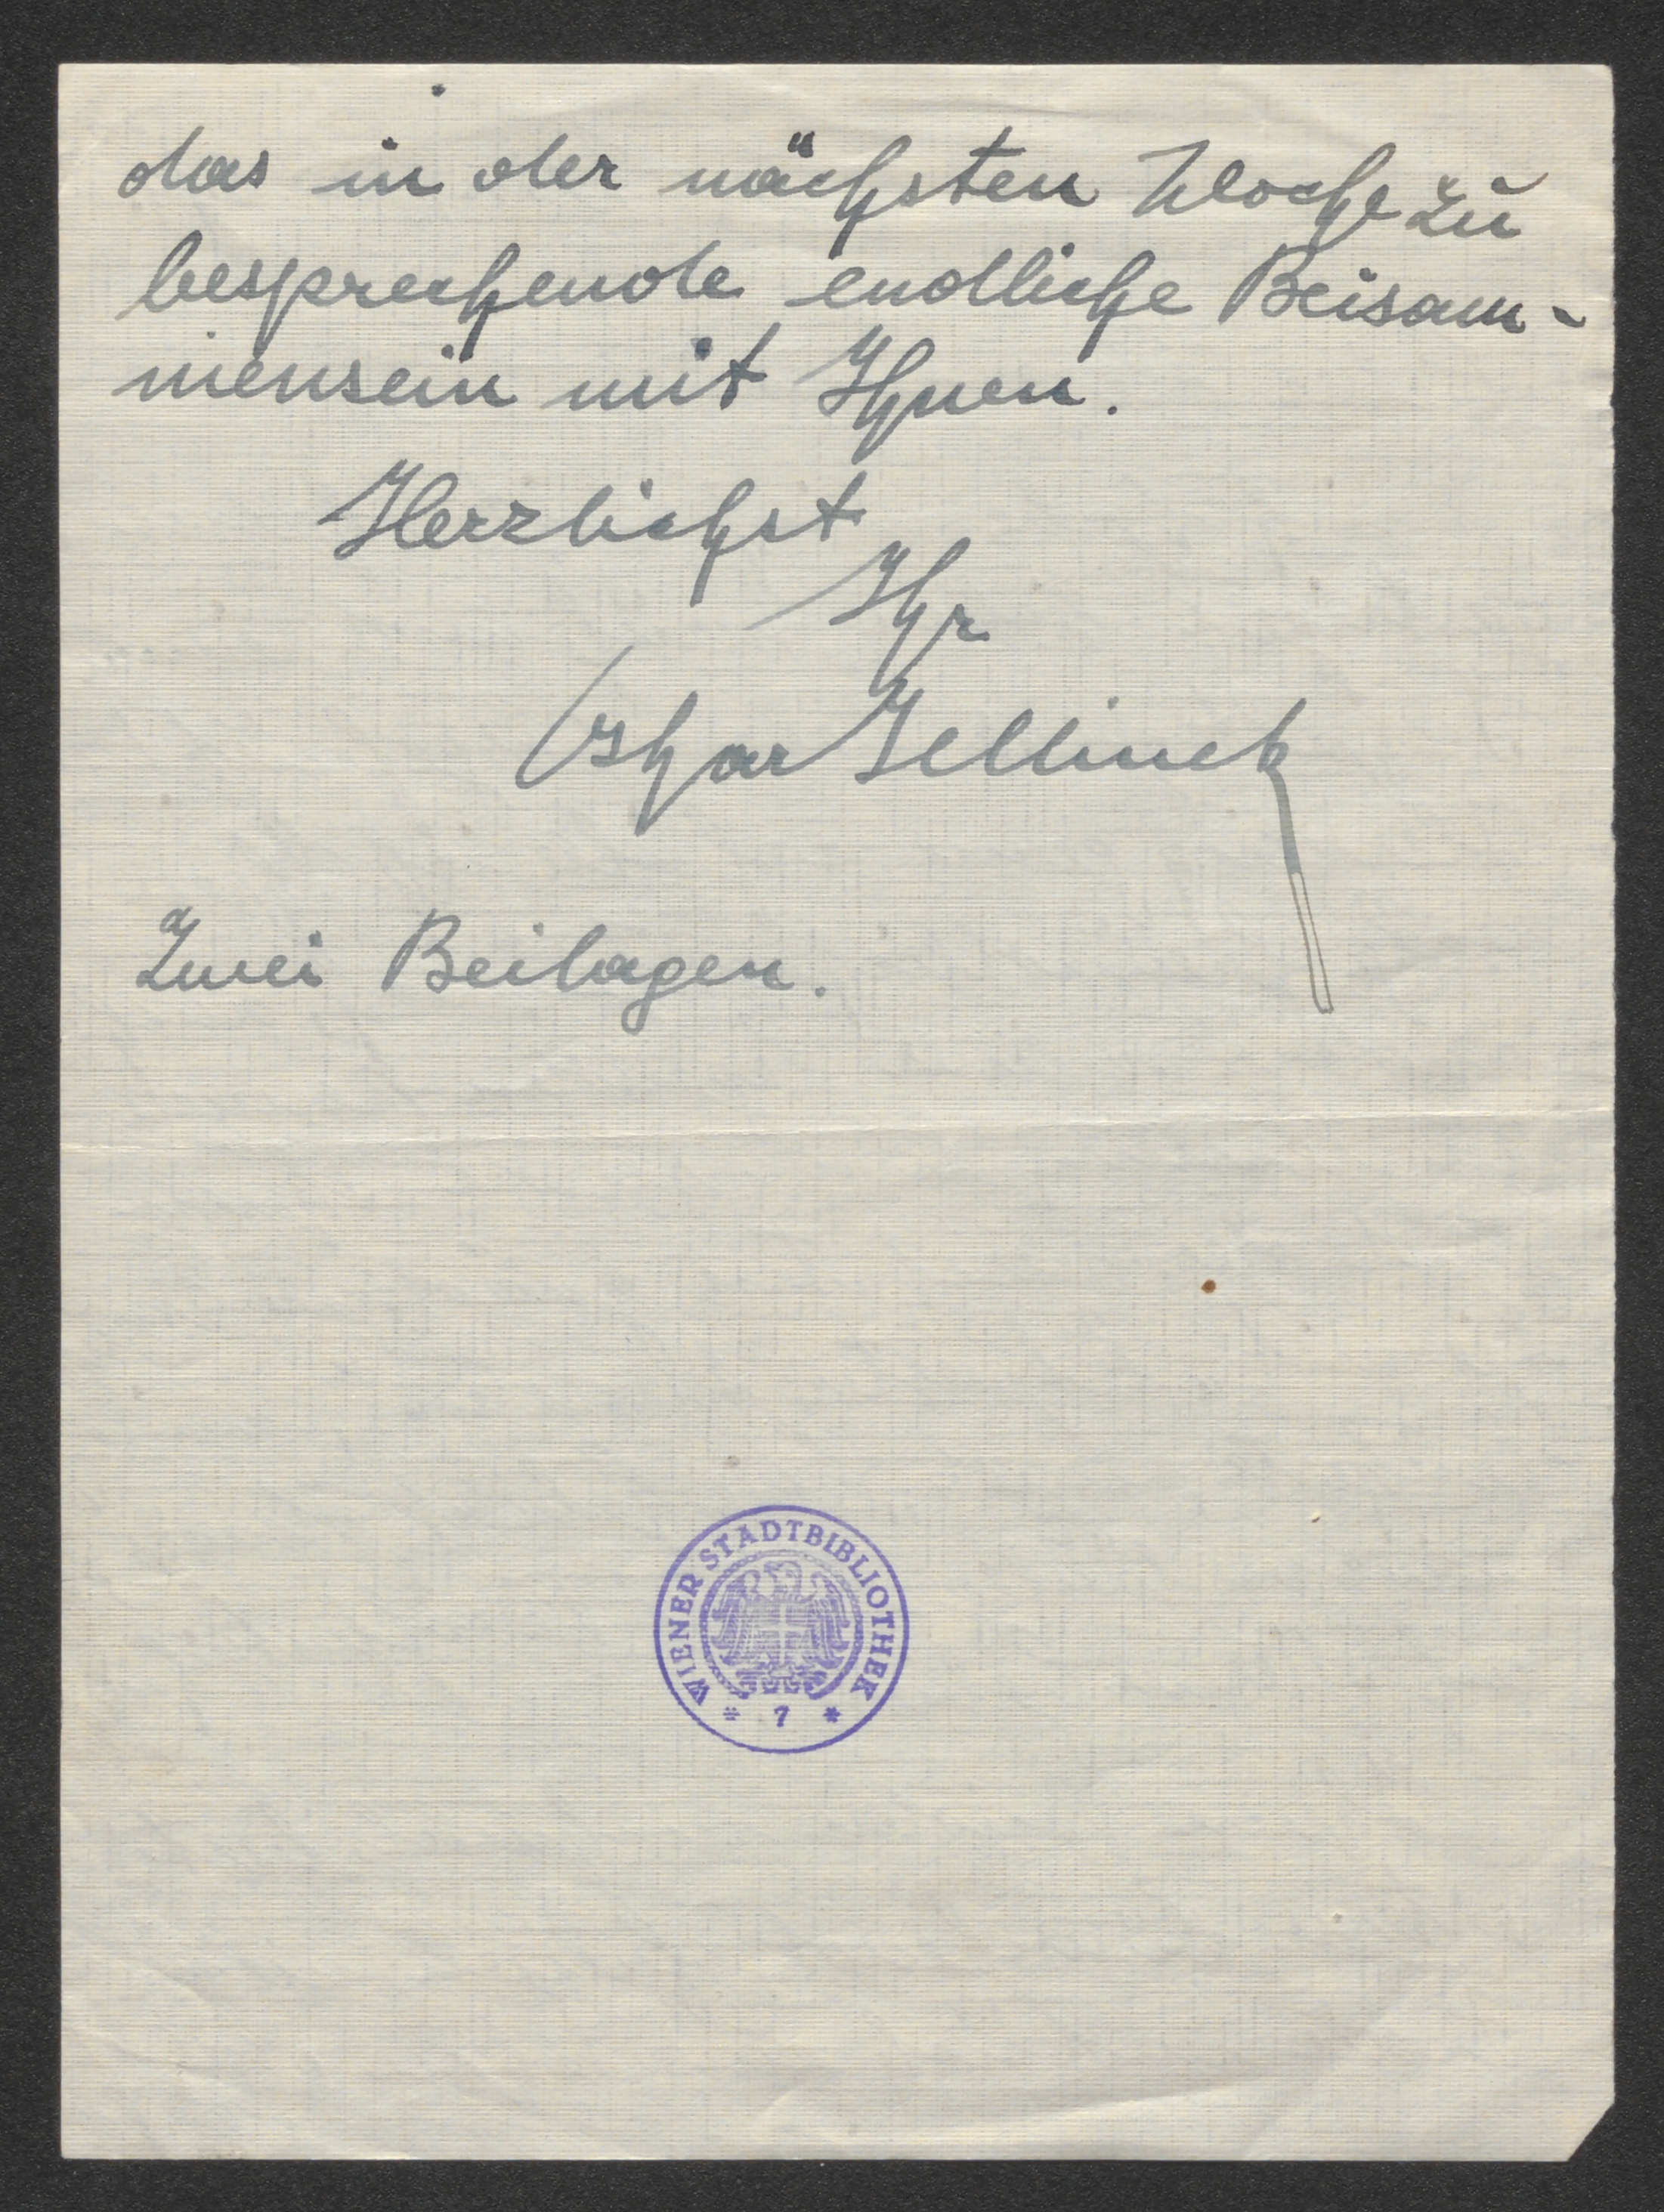 das in der nächsten Woche zu
besprechende endliche Beisam-
mensein mit Ihnen.
Herzlichst
Ihr
Oskar Jellinek
Zwei Beilagen.
WIENER STADTBIBLIOTHEK
* 7 *